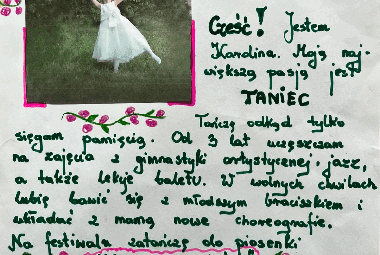 Cześć! Jestem
Karolina. Moją naj-
większą pasją jest
TANIEC
Tańczę odkąd tylko
sięgam pamięcią. Od 3 lat uczęszczam
na zajęcia z gimnastyki artystycznej, jazz,
a także lekcje baletu. W wolnych chwilach
lubię bawić się z młodszym braciszkiem i
układać z mamą nowe choreografie.
Na festiwalu zatańczę do piosenki